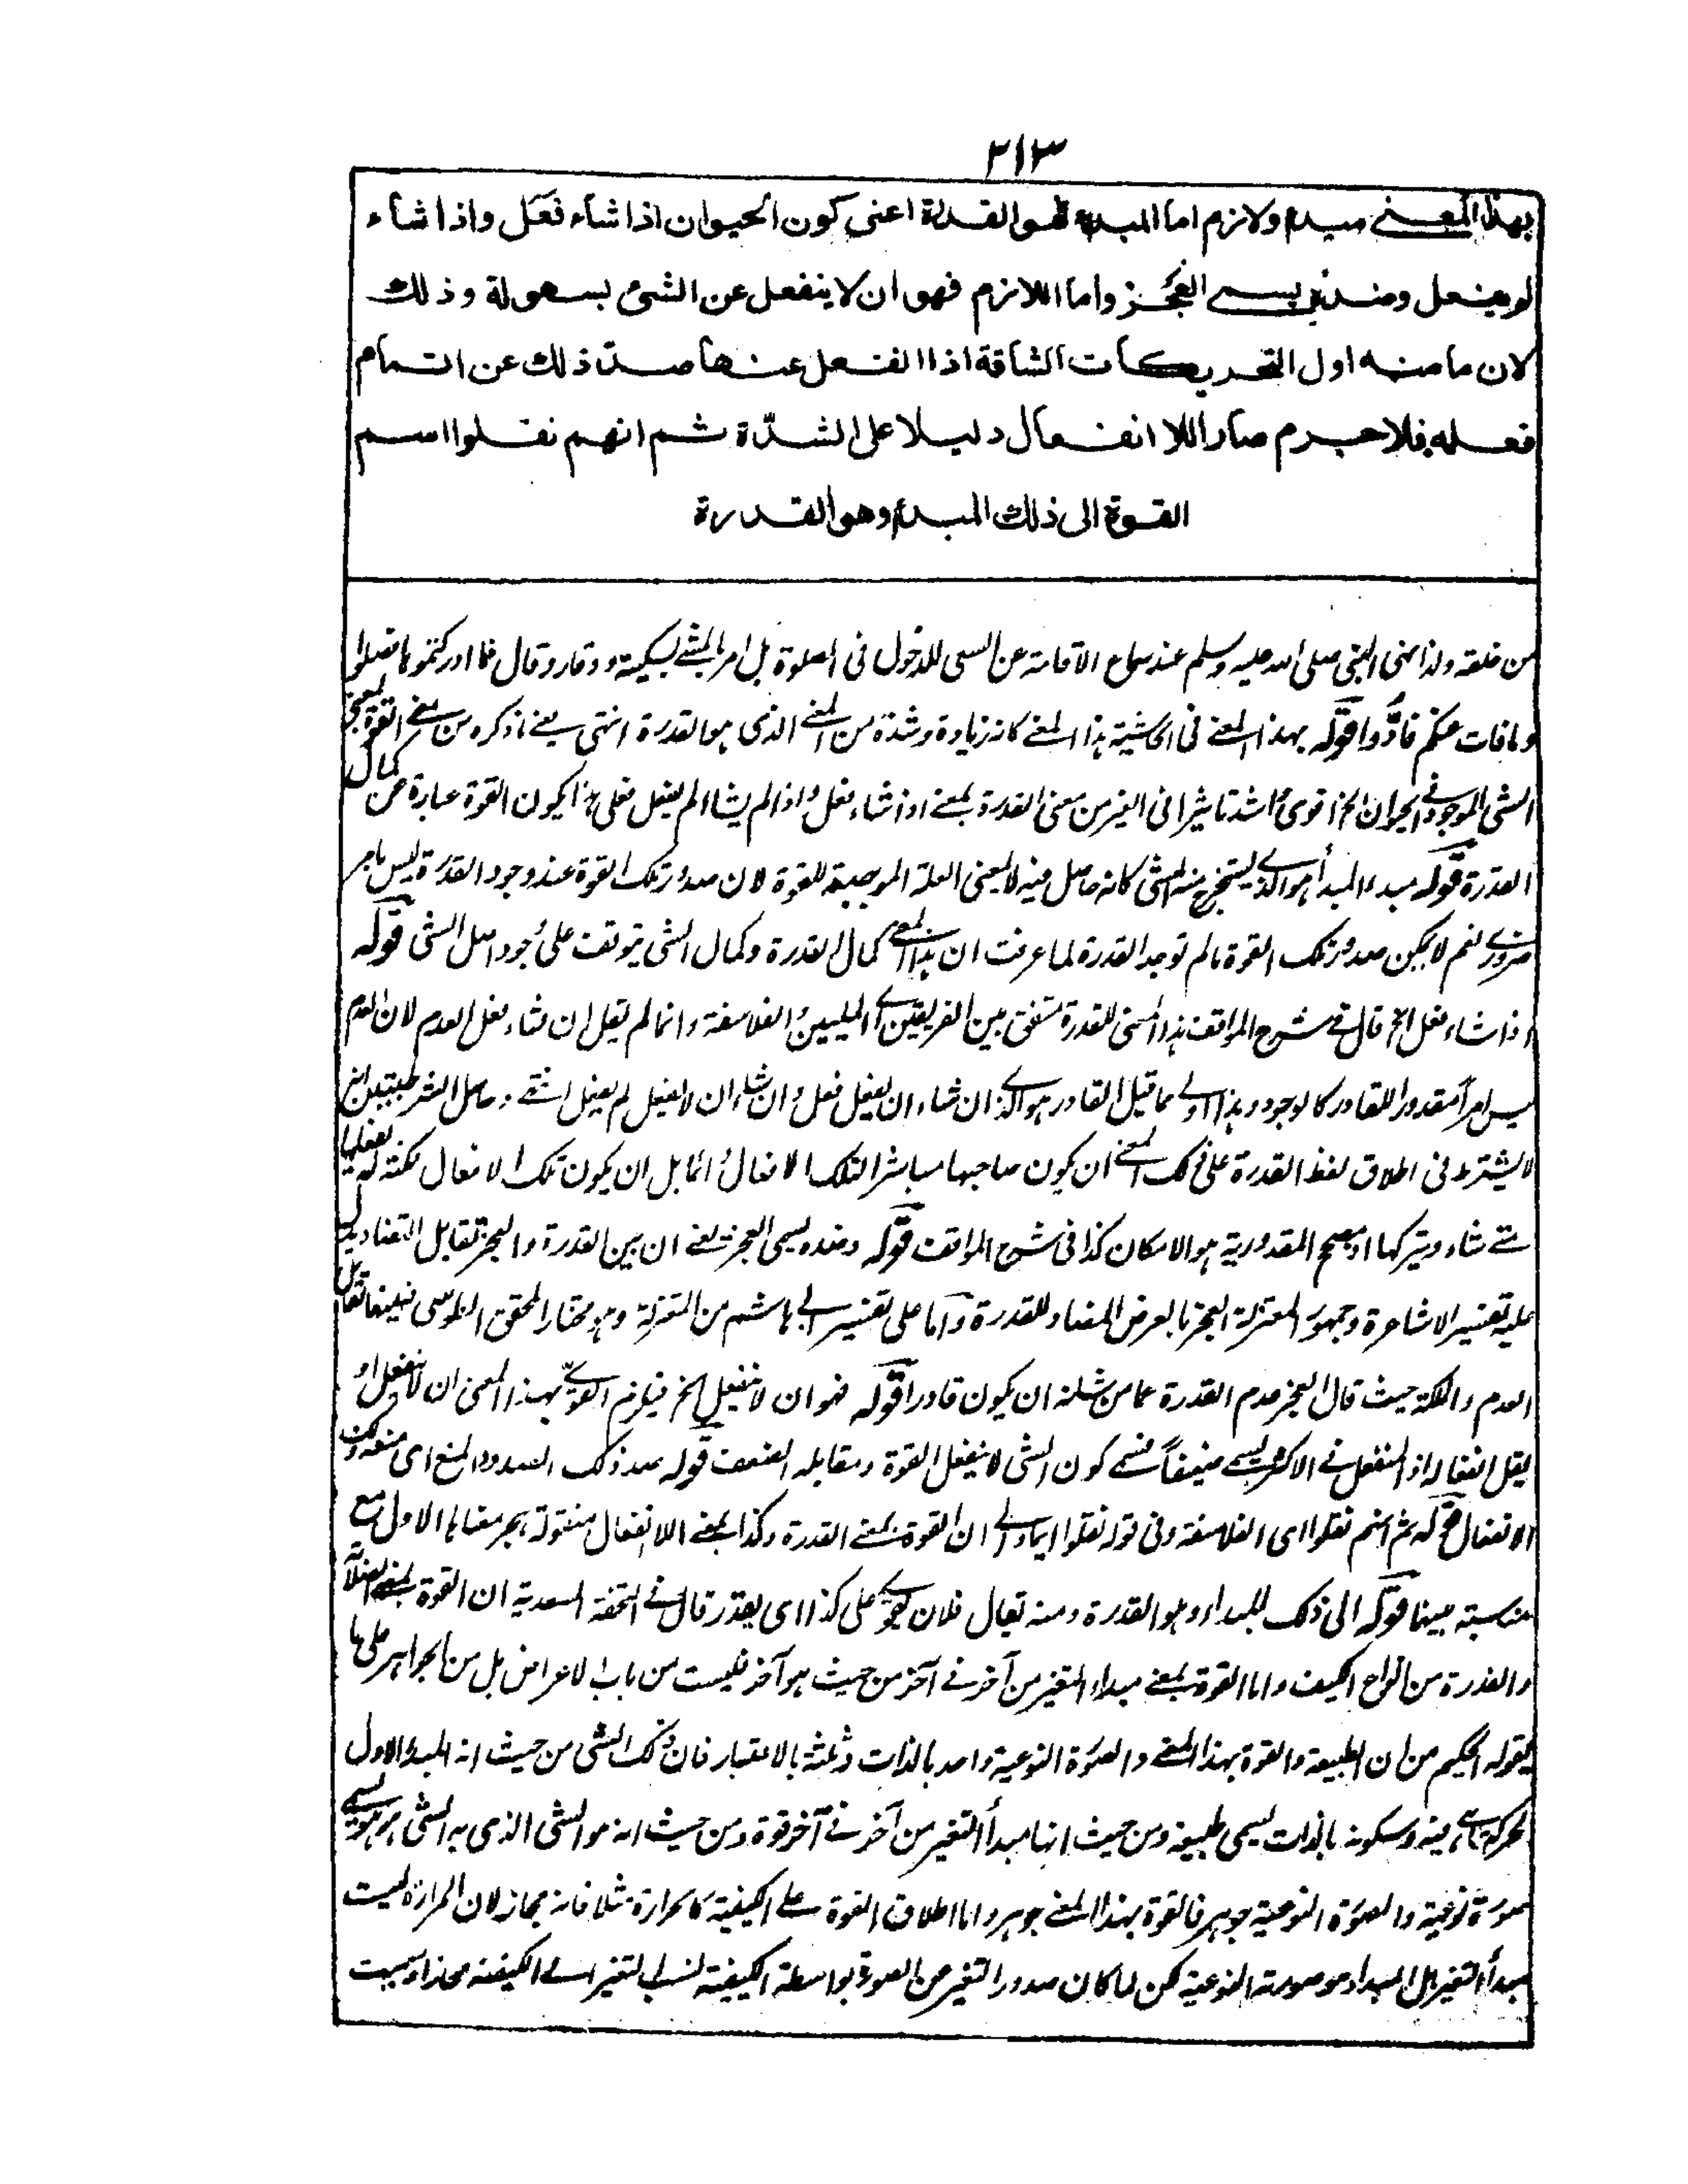 ٣١٣
بهذا المعنى مبدء ولازم اما المبدء فهو القدرة اعنى كون الحيوان اذا شاء فعل واذا شاء
لم يفعل وضده يسمى العجز واما اللازم فهو ان لا ينفعل عن الشئ بسهولة وذلك
لان مامنه اول التحريكات الشاقة اذا انفعل عنها صدّ ذلك عن اتمام
فعله فلاجرم صار اللا انفعال دليلا على الشدّة ثم انهم نقلوا اسم
القوة الى ذلك المبدء وهو القدرة
من خلفه ولذا نهى النبى صلى الله عليه وسلم عند سماع الاقامة عن السعى للدخول فى الصلوة بل امر بالمشى بسكينة ووقار وقال فما ادركتمو فصلوا
وما فات عنكم فادّوا قوله بهذا المعنى فى الحاشية هذا المعنى كانه زيادة وشدة من المعنى الذى هو القدرة انتهى يعنى ما ذكره من معنى القوة
الشى الموجود فى الحيوان الخ اقوى واشد تاثيرا فى الغير من معنى القدرة بمعنى اذا شاء فعل واذا لم يشا لم يفعل فعلى هذا يكون القوة عبارة عن كمال
القدرة قوله مبدء المبدأ هو الذى يستخرج منه الشى كانه حاصل فيه لا بمعنى العلة الموجبة للقوة لان صدور تلك القوة عند وجود القدرة ليس بامر
ضرورى نعم لا يمكن صدور تلك القوة ما لم توجد القدرة لما عرفت ان هذا المعنى كمال القدرة وكمال الشى يتوقف على وجود اصل الشى قوله
اذا شاء فعل الخ قال فى شرح المواقف هذا المعنى للقدرة متفق بين الفريقين اى المليين والفلاسفة وانما لم يقل ان شاء فعل العدم لان العدم
ليس امرا مقدورا للقادر كالوجود وهذا اولى مما قيل القادر هو الذى ان شاء ان يفعل فعل وان شاء ان لا يفعل لم يفعل انتهى وحاصل الشرطيتين انه
لا يشترط فى اطلاق لفظ القدرة على ذلك المعنى ان يكون صاحبها مباشرا لتلك الافعال دائما بل ان يكون تلك الافعال ممكنة له يفعلها
متى شاء ويتركها اذ مصحح المقدورية هو الامكان كذا فى شرح المواقف قوله وضده يسمى العجز يعنى ان بين القدرة والعجز تقابل التضاد يدل
عليه تفسير الاشاعرة وجمهور المعتزلة العجز بالعرض المضاد للقدرة واما على تفسير ابى هاشم من المعتزلة وهو مختار المحقق الطوسى فبينهما تقابل
العدم والملكة حيث قال العجز عدم القدرة عما من شانه ان يكون قادرا قوله فهو ان لا ينفعل الخ فيلزم القوى بهذا المعنى ان لا ينفعل او
يقل انفعاله اذ المنفعل فى الاكثر يسمى ضعيفا فسمى كون الشى لا ينفعل القوة ومقابله الضعف قوله صد ذلك الصدود المنع اى منعه ذلك
الانفعال قوله ثم انهم نقلوا اى الفلاسفة وفى قوله نقلوا ايماء الى ان القوة بمعنى القدرة وكذا بمعنى اللا انفعال منقولة بهجر معناها الاول مع
مناسبة بينهما قوله الى ذلك المبداء وهو القدرة ومنه تقال فلان يقوى على كذا اى يقدر قال فى التحفة السعدية ان القوة بمعنى
والقدرة من انواع الكيف واما القوة بمعنى مبداء التغير من آخر فى آخر من حيث هو آخر فليست من باب الاعراض بل من الجواهر على ما
يقوله الحكيم من ان الطبيعة والقوة بهذا المعنى والصورة النوعية واحد بالذات وثلثة بالاعتبار فان ذلك الشى من حيث انه المبدء الاول
لحركة ما هى فيه وسكونه بالذات يسمى طبيعة ومن حيث انها مبدأ التغير من آخر فى آخر قوة ومن حيث انه هو الشى الذى به الشى هو هو يسمى
صورة نوعية والصورة النوعية جوهر فالقوة بهذا المعنى جوهر واما اطلاق القوة على الكيفية كالحرارة مثلا فانه مجاز لان الحرارة ليست
مبدأ التغير بل المبداء هو صورته النوعية لكن لما كان صدور التغير عن الصورة بواسطة الكيفية نسب التغير الى الكيفية مجازا وسميت